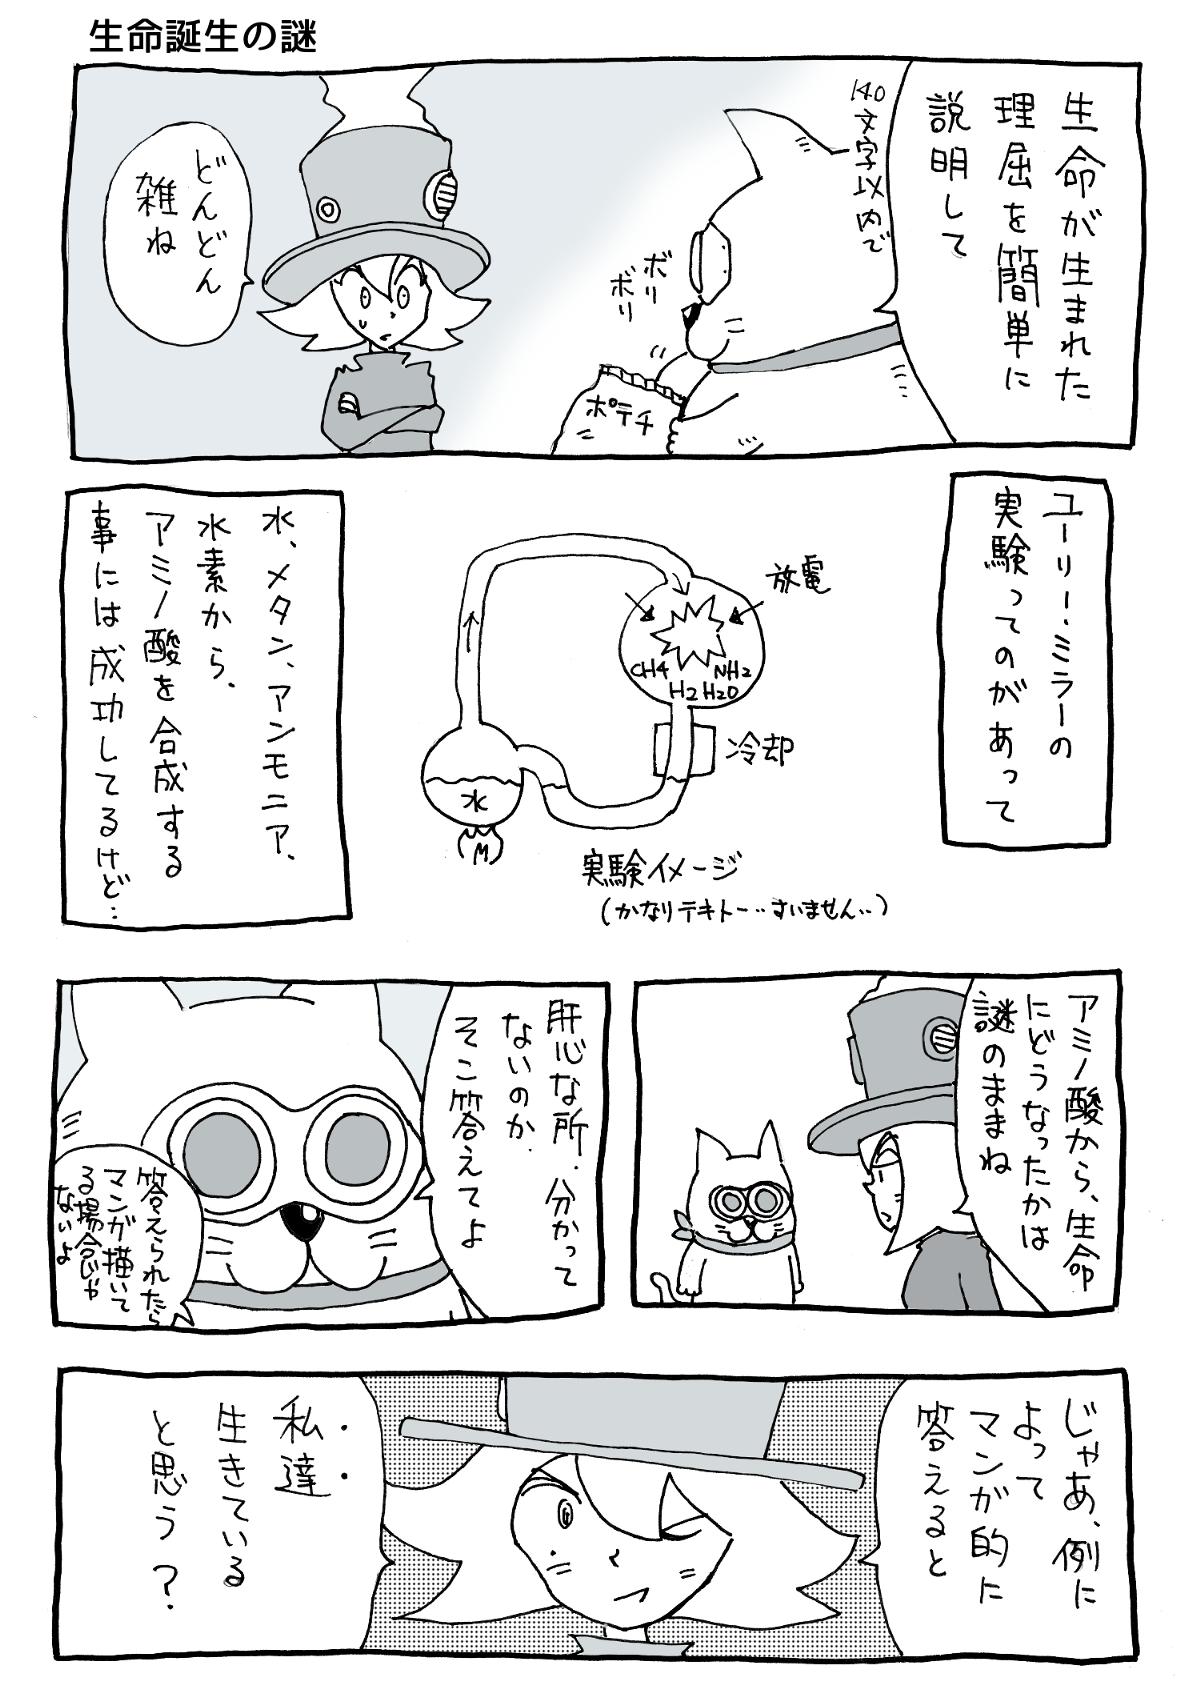 生命誕生の謎
生命が生まれた
理屈を簡単に
説明して
140文字以内で
ボリ
ボリ
ポテチ
どんどん
雑ね
ユーリー・ミラーの
実験ってのがあって
放電
CH4
NH2
H2
H2O
冷却
水
実験イメージ
(かなりテキトー‥すいません‥)
水、メタン、アンモニア、
水素から、
アミノ酸を合成する
事には成功してるけど…
アミノ酸から、生命
にどうなったかは
謎のままね
肝心な所、分かって
ないのか、
そこ答えてよ
答えられたら
マンガ描いて
る場合じゃ
ないよ
じゃあ、例に
よって
マンガ的に
答えると
私達
生きている
と思う？